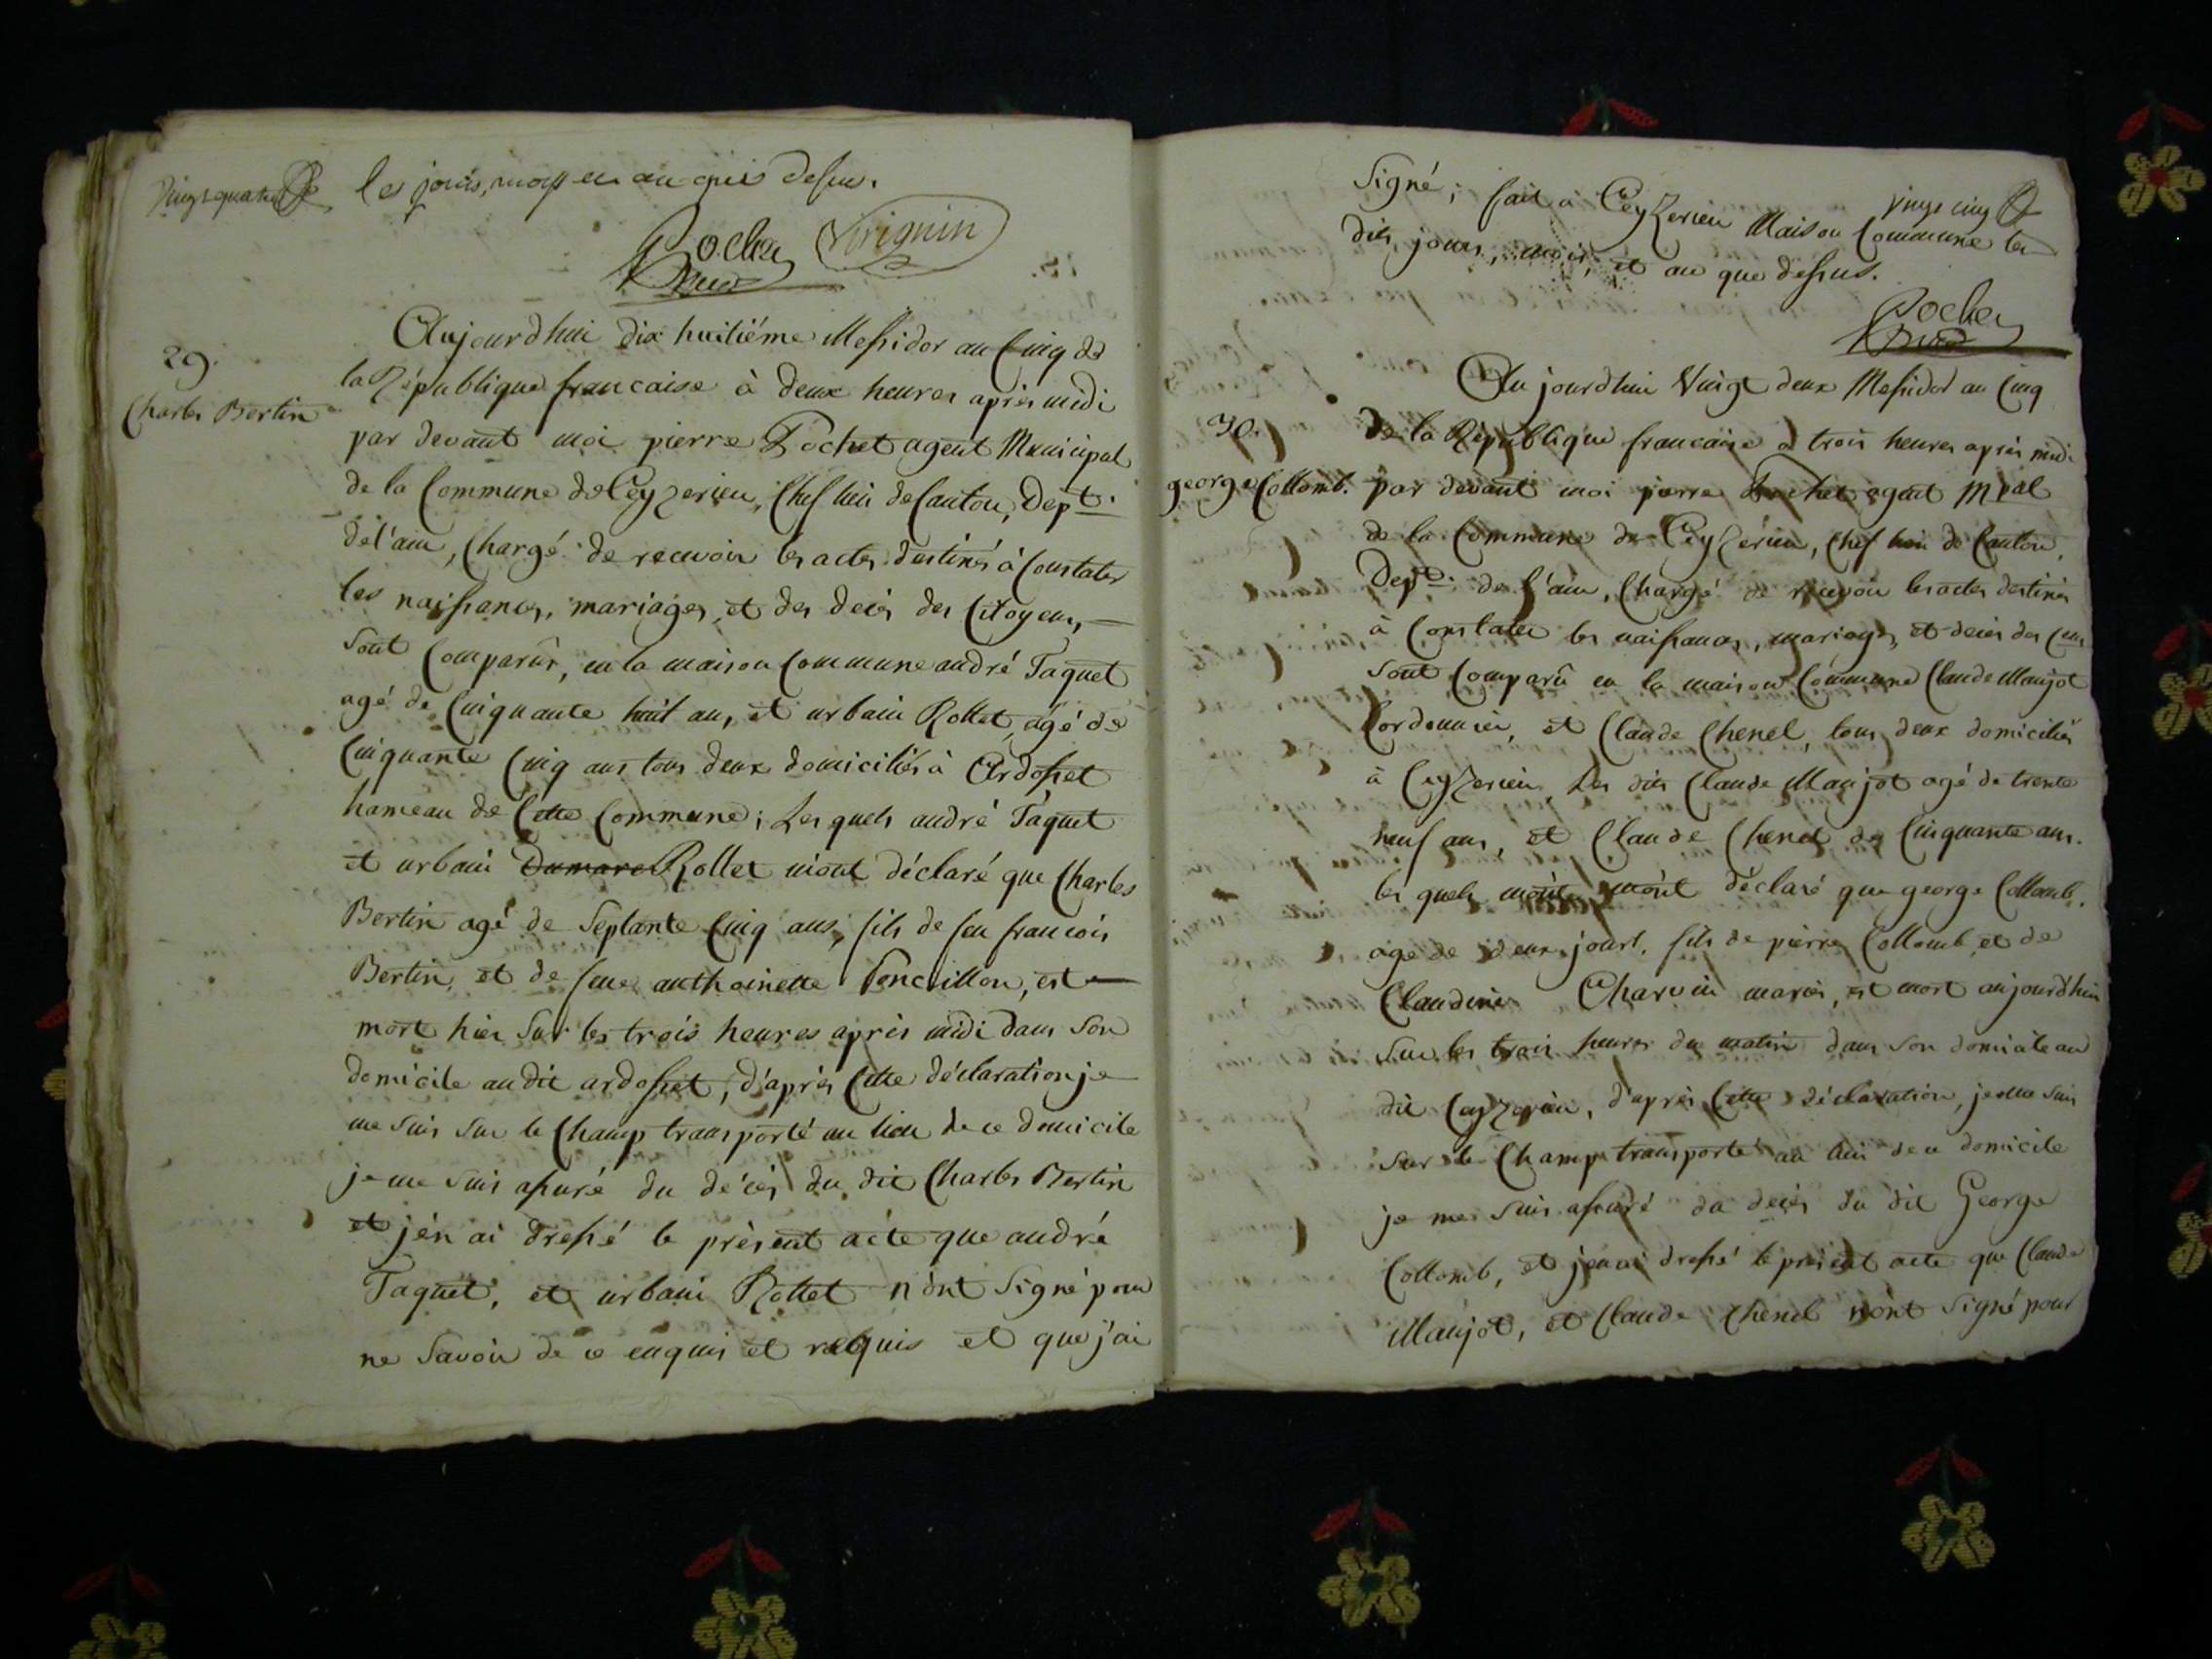 vingt quatre
les jours, mois et an que dessus.
Pochet Virignin
29.
Charles Bertin
Aujourdhui dix huitiéme Messidor an Cinq de
la République francaise à deux heures après midi
par devant moi pierre Pochet agent Municipal
de la Commune de Ceyzerieu, Chef lieu de Canton, Dept.
de l'ain, Chargé de recevoir les actes destinés à Constater
les naissances, mariages, et des decés des Citoyens,
sont Comparûs, en la maison Commune andré Taquet
agé de Cinquante huit ans, et urbain Rollet agé de
Cinquante Cinq ans tous deux domiciliés à Ardosset
hameau de Cette Commune; Lesquels andré Taquet
et urbain Dumare Rollet m'ont déclaré que Charles
Bertin agé de Septante Cinq ans, fils de feu francois
Bertin, et de feue anthoinette, est
mort hier Sur les trois heures après midi dans Son
domicile au dit ardosset, d'après Cette déclaration je
me suis Sur le Champ transporté au lieu de ce domicile
je me suis assuré du décés du dit Charles Bertin
et j'en ai dressé le présent acte que andré
Taquet, et urbain Rollet n'ont Signé pour
ne Savoir de ce enquis et requis et que j'ai
vingt cinq
Signé; fait à Ceyzerieu Maison Commune les
dits jours, mois, et an que dessus.
Pochet
30.
george Collomb.
Aujourdhui Vingt deux Messidor an Cinq
de la République francaise à trois heures après midi
par devant moi pierre Pochet agent Mpal
de la Commune de Ceyzérieu, Chef lieu de Canton,
Dept. de l'ain, Chargé de recevoir les actes destinés
à Constater les naissances, mariages, et decés des Cens
sont Comparû en la maison Commune Claude Maujot
Cordonnier, et Claude Chenel, tous deux domiciliés
à Ceyzerieu Les dits Claude Maujot agé de trente
neuf ans, et Claude Chenel de Cinquante ans.
les quels m'ont m'ont déclaré que george Collomb,
age de deux jours, fils de pierre Collomb, et de
Claudine Charvin mariés, est mort aujourdhui
Sur les trois heures du matin dans son domicile au
dit Ceyzerieu, d'après Cette déclaration, je me suis
sur le Champ transporté au lieu de ce domicile
je me suis assuré du decès du dit George
Collomb, et j'en ai dressé le présent acte que Claude
Maujot, et Claude Chenel n'ont Signé pour